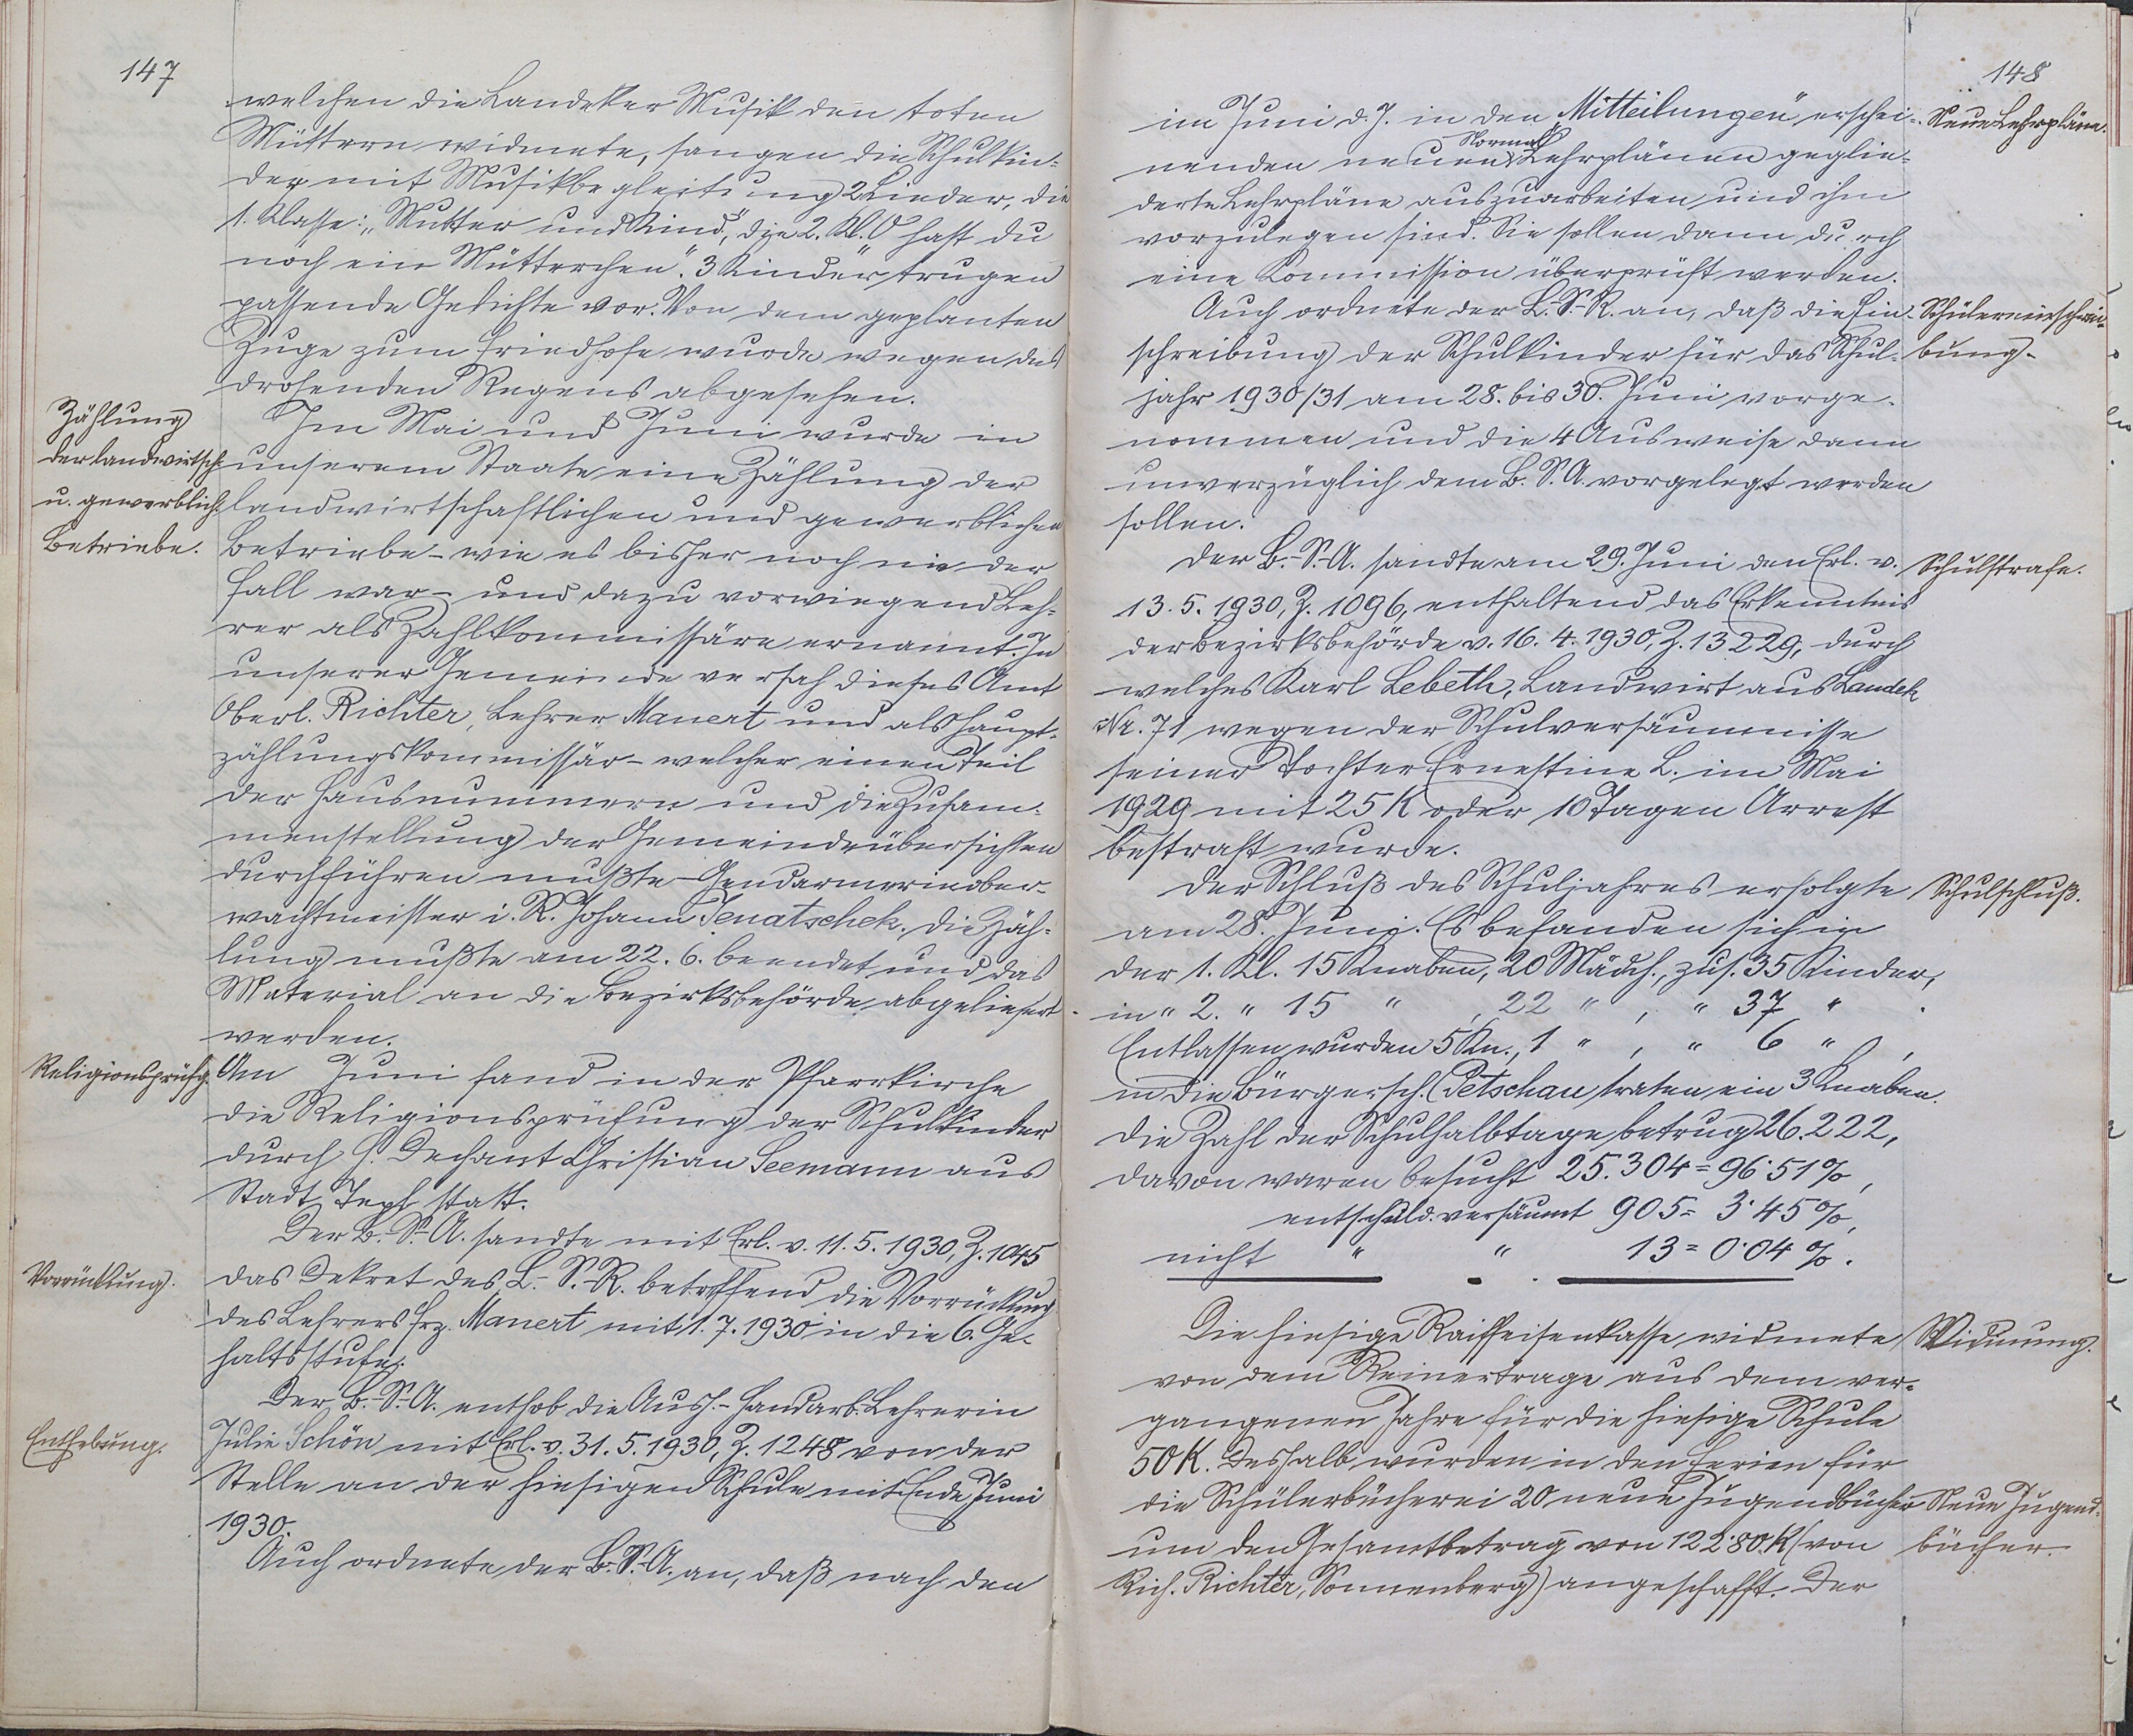 147
welchen die Landeker Musik den toten
Müttern widmete, sangen die Schulkin-
der mit Musikbegleitung 2 Lieder, die
1. Klasse: „Mutter und Kind“, die 2. Kl. „O hast du
noch ein Mütterchen“. 3 Kinder trugen
passende Gedichte vor. Von dem geplanten
Zuge zum Friedhofe wurde wegen des
drohenden Regens abgesehen.
Zählung
der landwirtsch.
u. gewerblich.
Betriebe.
Im Mai und Juni wurde in
unserem Staate eine Zählung der
landwirtschaftlichen und gewerblichen
Betriebe - wie es bisher noch nie der
Fall war - und dazu vorwiegend Leh-
rer als Zählkommissäre ernannt. In
unserer Gemeinde versah dieses Amt
Oberl. Richter, Lehrer Manert und als Haupt-
zählungskommissär - welcher einen Teil
der Hausnummern und die Zusam-
menstellung der Gemeindeübersichten
durchführen mußte - Gendarmerieober-
wachtmeister i. R. Johann Jenatschek. Die Zäh-
lung mußte am 22. 6. beendet und das
Material an die Bezirksbehörde abgeliefert
werden.
Religionsprüfg.
Am Juni fand in der Pfarrkirche
die Religionsprüfung der Schulkinder
durch H. Dechant Christian Seemann aus
Stadt Tepl statt.
Der B.-S.-A. sandte mit Erl. v. 11. 5. 1930, Z. 1045
Vorrückung.
das Dekret des L.-S.-R. betreffend die Vorrückung
des Lehrers Frz. Manert mit 1. 7. 1930 in die 6. Ge-
haltsstufe.
Der B.-S.-A. enthob die Aush.-Handarb.-Lehrerin
Enthebung.
Julie Schön mit Erl. v. 31. 5. 1930, Z. 1248 von der
Stelle an der hiesigen Schule mit Ende Juni
1930.
Auch ordnete der B.-S.-A. an, daß nach den
148
im Juni d. J. in den „Mitteilungen“ erschei-
Neue Lehrpläne.
nenden neuen Normal Lehrplänen geglie-
derte Lehrpläne auszuarbeiten und ihm
vorzulegen sind. Sie sollen dann durch
eine Kommission überprüft werden.
Auch ordnete der L.-S.-R. an, daß die Ein-
Schülereinschrei-
schreibung der Schulkinder für das Schul-
bung.
jahr 1930/31 am 28. bis 30. Juni vorge-
nommen und die 4 Ausweise dann
unverzüglich dem B. S. A. vorgelegt werden
sollen.
Der B.-S.-A. sandte am 29. Juni den Erl. v.
Schulstrafe.
13. 5. 1930, Z. 1096, enthaltend das Erkenntnis
der Bezirksbehörde v. 16. 4. 1930, Z. 13229, durch
welches Karl Lebeth, Landwirt aus Landek
Nr. 71 wegen der Schulversäumnisse
seiner Tochter Ernestine L. im Mai
1929 mit 25 K oder 10 Tagen Arrest
bestraft wurde.
Der Schluß des Schuljahres erfolgte
Schulschluß.
am 28. Juni. Es befanden sich in
der 1. Kl. 15 Knaben, 20 Mädch., zus. 35 Kinder,
in " 2. " 15 " , 22 " , " 37 " .
Entlassen wurden 5 Kn., 1 " , " 6 " ,
in die Bürgersch. Petschau traten ein 3 Knaben.
Die Zahl der Schulhalbtage betrug 26.222,
davon waren besucht 25.304 = 96·51 %,
entschuld. versäumt 905 = 3·45 %,
nicht " " 13 = 0·04 %.
Die hiesige Raiffeisenkasse widmete
Widmung.
von dem Reinertrage aus dem ver-
gangenen Jahre für die hiesige Schule
50 K. Deshalb wurden in den Ferien für
die Schülerbücherei 20 neue Jugendbücher
Neue Jugend-
um den Gesamtbetrag von 122·80 K (von
bücher.
Rich. Richter, Sonnenberg) angeschafft. Der